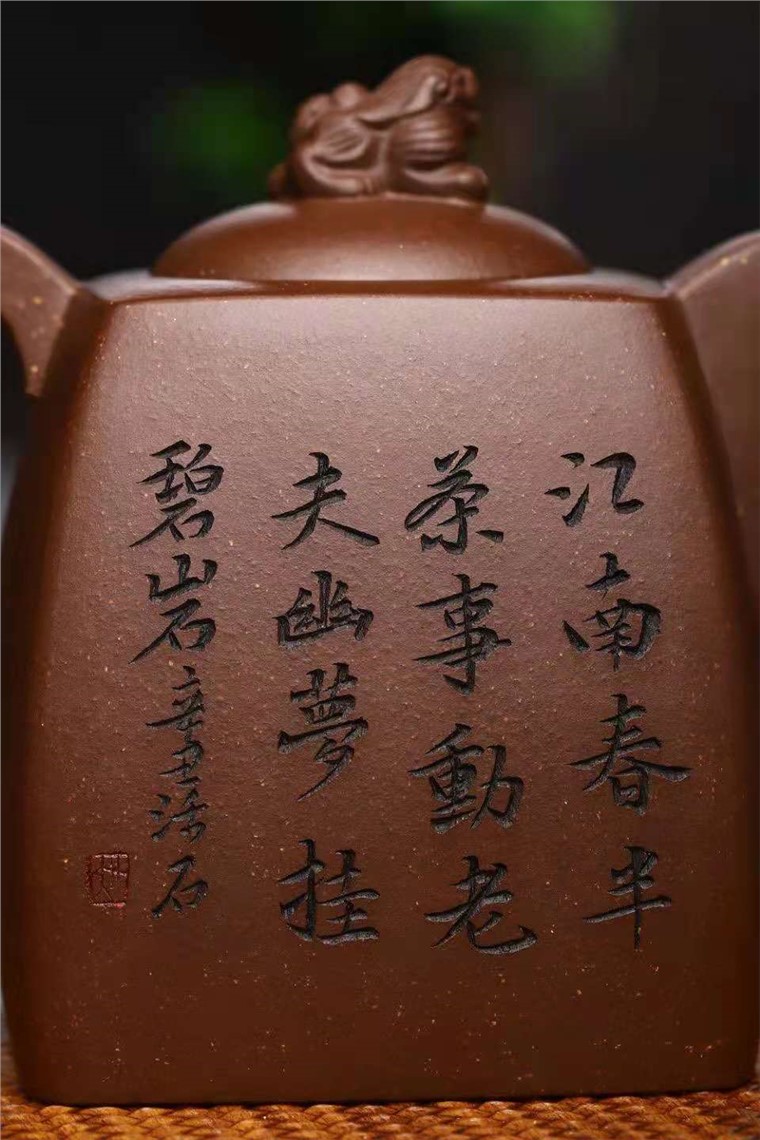 江南春半
茶事動老
夫幽夢挂
碧岩辛丑添石